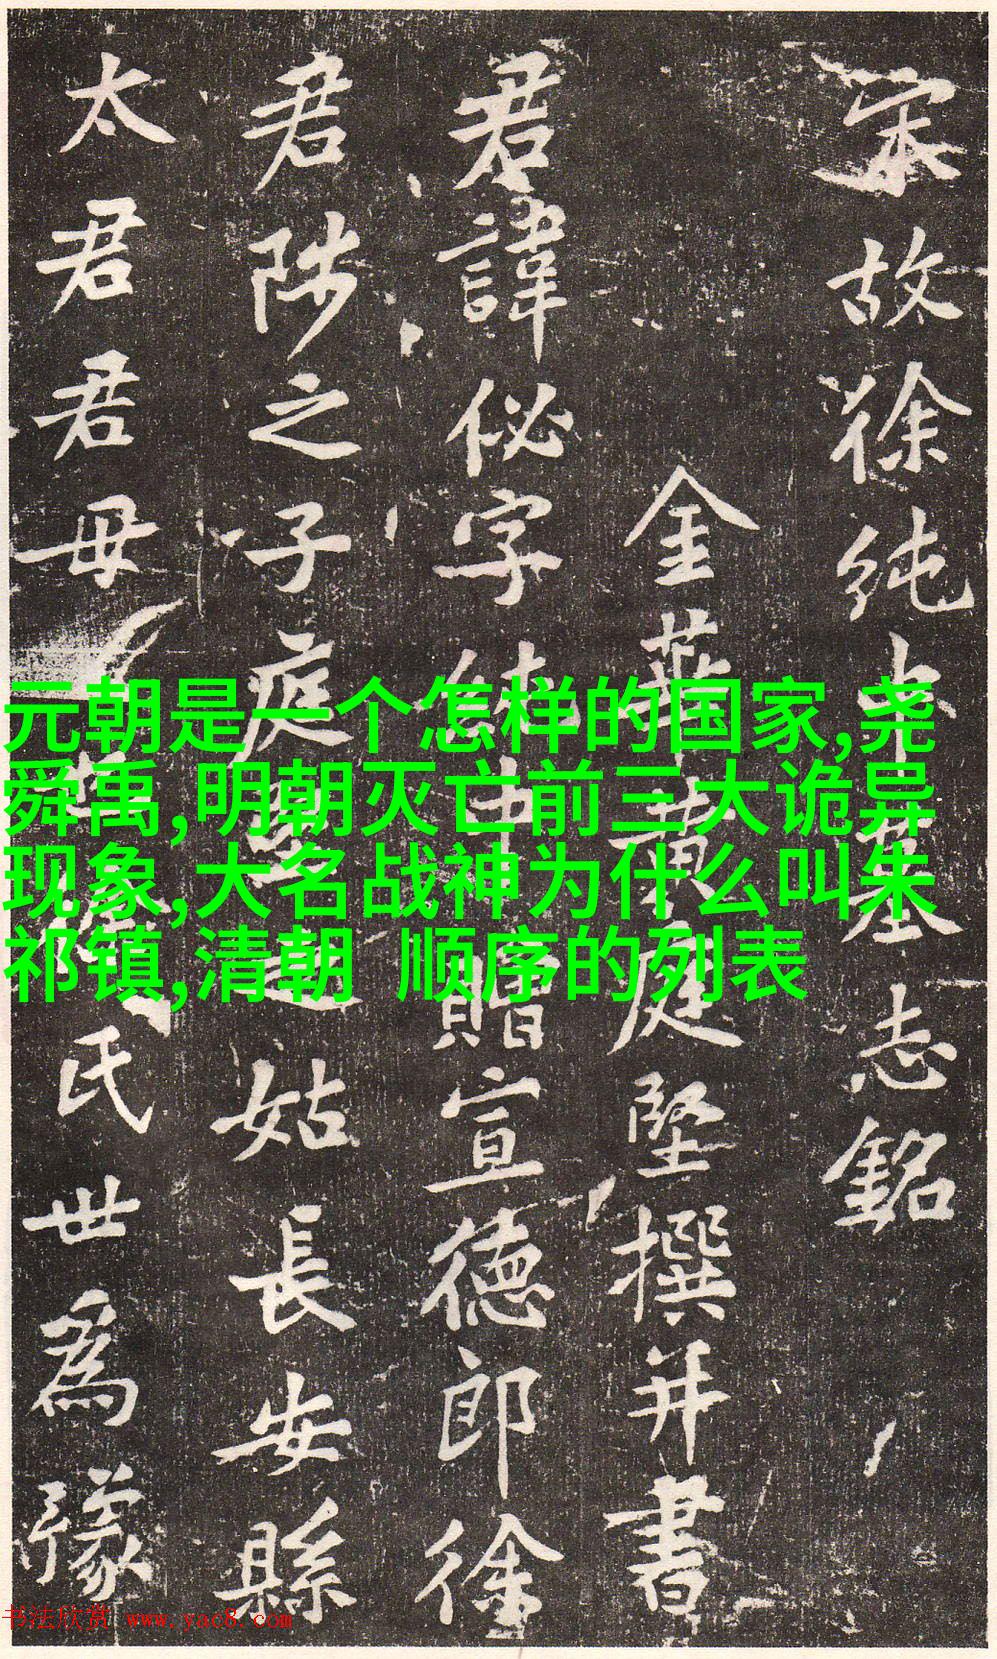 宋故徐纯中墓志銘
金華黄庭堅撰并書
君諱佖字純中贈宣德郎徐
君陟之子庭堅之姑長安縣
太君君母
氏世為豫
元朝是一个怎样的国家,尧
舜禹,明朝灭亡前三大诡异
现象,大名战神为什么叫朱
祁镇,清朝 顺序的列表
书法欣赏 www.yac8.com